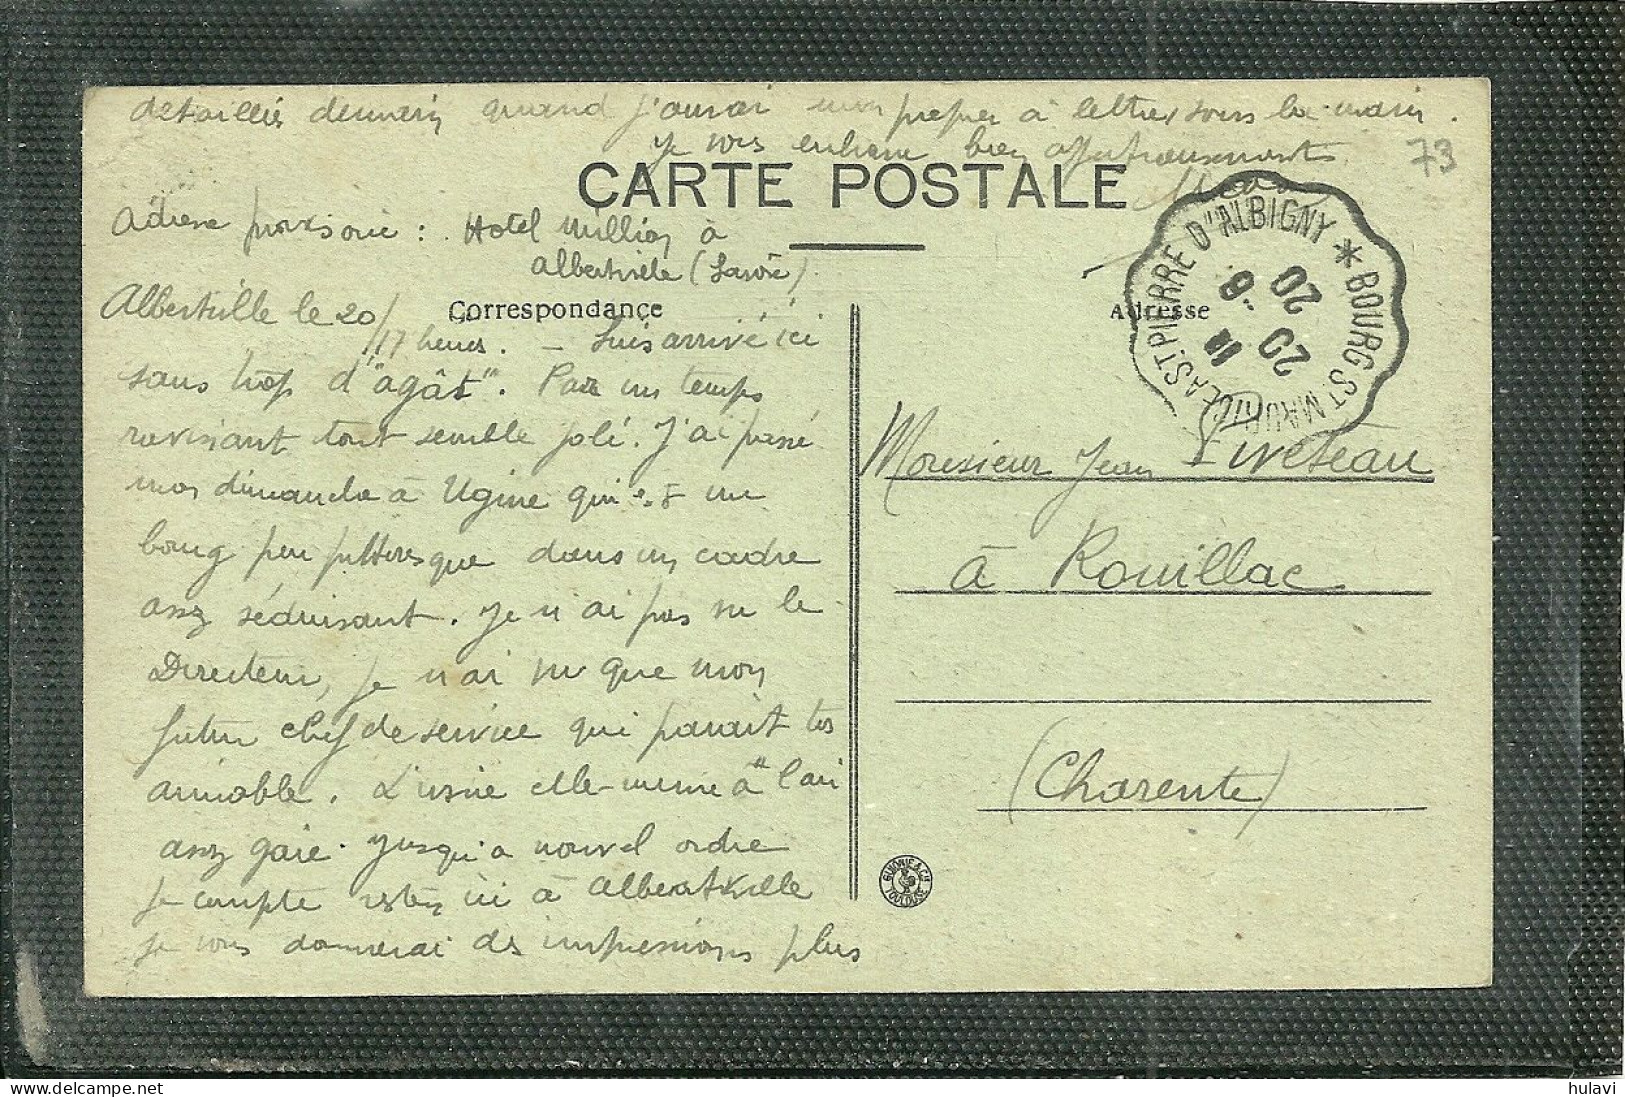 détaillées demain quand j'aurai mon papier à lettres sous la main.
je vous embrasse bien affectueusement
73
CARTE POSTALE
Adresse provisoire : Hotel Million à
Albertville (Savoie)
Correspondance
Adresse
BOURG ST MAURICE A ST PIERRE D'ALBIGNY *
20
20
Albertville le 20/
17 heures. – Suis arrivé ici
sans trop d'"agât". Par un temps
ravissant tout semble joli. J'ai passé
mon dimanche à Ugine qui est un
bourg peu pittoresque dans un cadre
assez séduisant. Je n'ai pas vu le
Directeur, je n'ai vu que mon
futur chef de service qui parait très
aimable. L'usine elle-même a l'air
assez gaie. Jusqu'à nouvel ordre
je compte rester ici à Albertville
je vous donnerai des impressions plus
Monsieur Jean
à Rouillac
(Charente)
GUIONIE & Cie TOULOUSE
hulavi